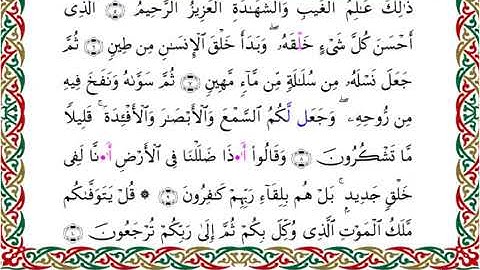 ذَٰلِكَ عَٰلِمُ ٱلْغَيْبِ وَٱلشَّهَٰدَةِ ٱلْعَزِيزُ ٱلرَّحِيمُ ۝ ٱلَّذِي
أَحْسَنَ كُلَّ شَيْءٍ خَلْقَهُۥ ۖ وَبَدَأَ خَلْقَ ٱلْإِنسَٰنِ مِن طِينٍ ۝ ثُمَّ
جَعَلَ نَسْلَهُۥ مِن سُلَٰلَةٍ مِّن مَّآءٍ مَّهِينٍ ۝ ثُمَّ سَوَّىٰهُ وَنَفَخَ فِيهِ
مِن رُّوحِهِۦ ۖ وَجَعَل لَّكُمُ ٱلسَّمْعَ وَٱلْأَبْصَٰرَ وَٱلْأَفْـِٔدَةَ ۚ قَلِيلًا
مَّا تَشْكُرُونَ ۝ وَقَالُوٓا۟ أَ•ذَا ضَلَلْنَا فِي ٱلْأَرْضِ أَ•نَّا لَفِي
خَلْقٍ جَدِيدٍۭ ۚ بَلْ هُم بِلِقَآءِ رَبِّهِمْ كَٰفِرُونَ ۝ ۞ قُلْ يَتَوَفَّىٰكُم
مَّلَكُ ٱلْمَوْتِ ٱلَّذِي وُكِّلَ بِكُمْ ثُمَّ إِلَىٰ رَبِّكُمْ تُرْجَعُونَ ۝